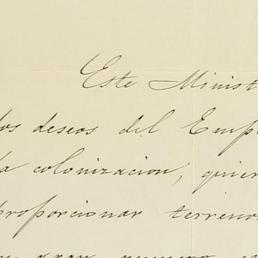 Este Minist
los deseos del Emp
la colonizacion, quier
proporcionar terreno
gran numero